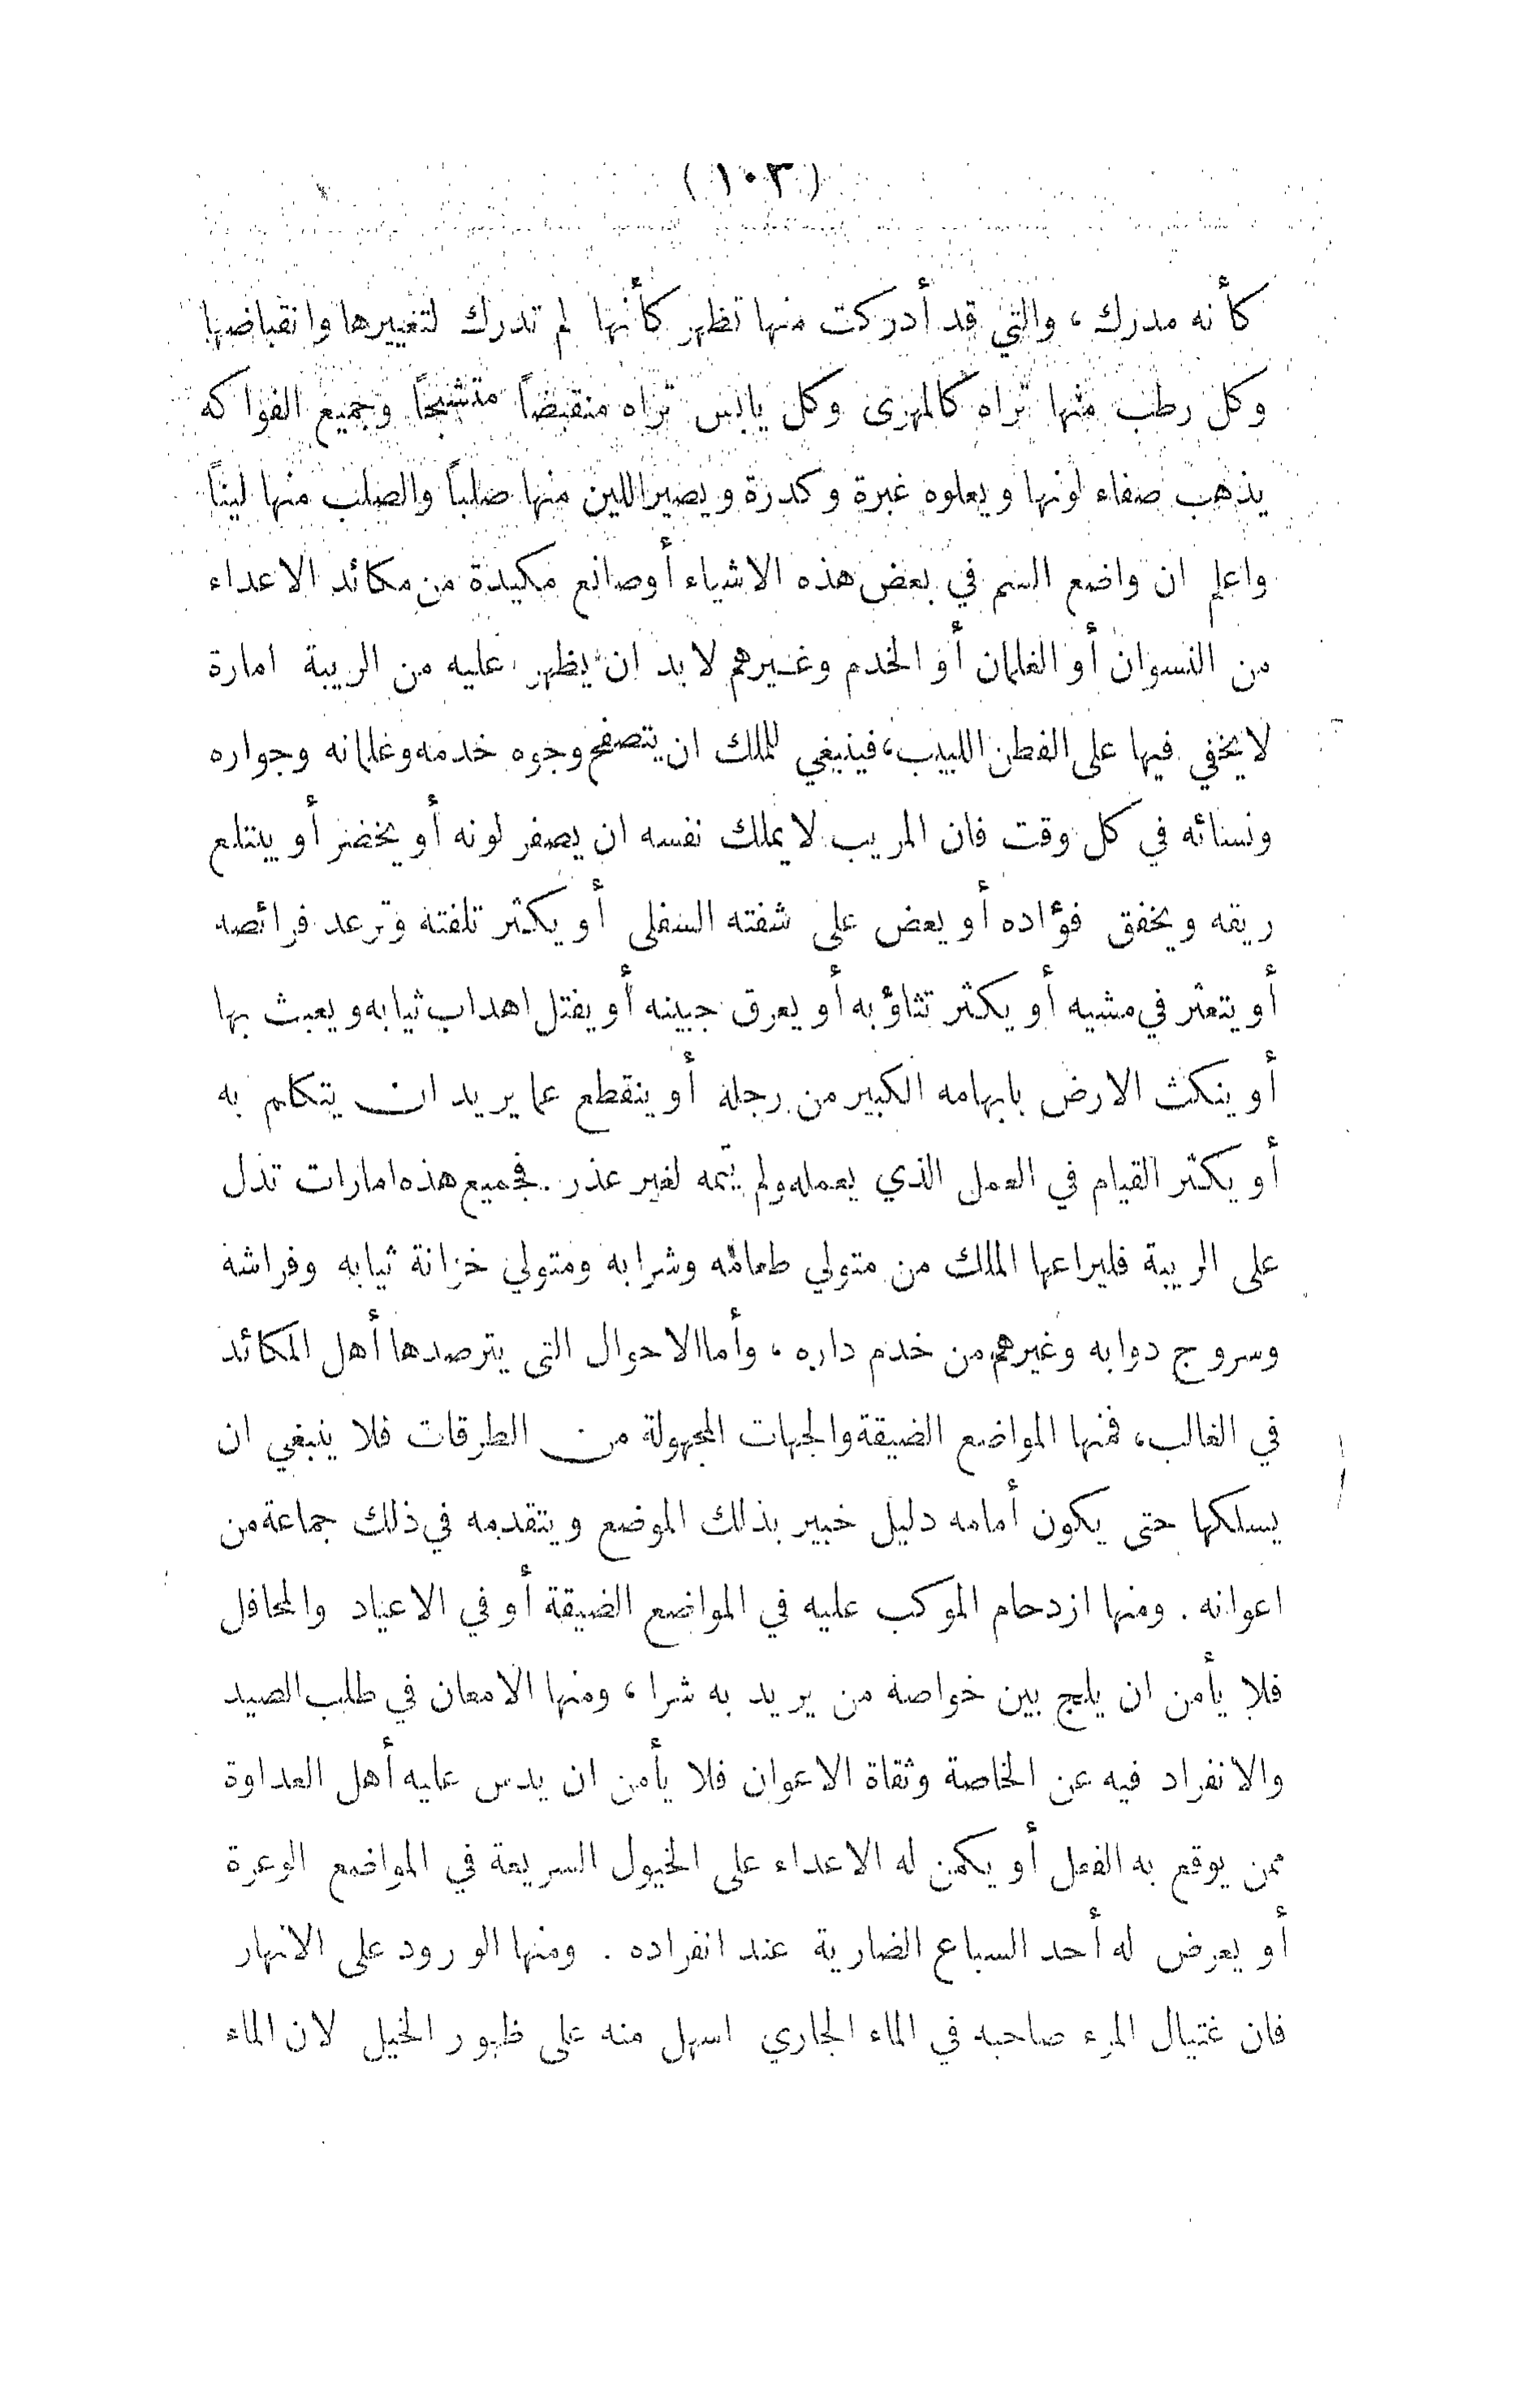 (١٠٣)
كأنه مدرك ، والتي قد أدركت منها تظهر كأنها لم تدرك لتغييرها وانقباضها
وكل رطب منها تراه كالمهزى وكل يابس تراه منقبضاً متشبحاً وجميع الفواكه
يذهب صفاء لونها ويعلوه غبرة وكدرة ويصير اللين منها صلباً والصلب منها ليناً
واعلم ان واضع السم في بعض هذه الاشياء أو صانع مكيدة من مكائد الاعداء
من النسوان أو الغلمان أو الخدم وغيرهم لا بد ان يظهر عليه من الريبة امارة
لا يخفي فيها على الفطن اللبيب ، فينبغي للملك ان يتصفح وجوه خدمه وغلمانه وجواره
ونسائه في كل وقت فان المريب لا يملك نفسه ان يصفر لونه أو يخضر أو يبتلع
ريقه ويخفق فؤاده أو يعض على شفته السفلى أو يكثر تلفته وترعد فرائصه
أو يتعثر في مشيه أو يكثر تثاؤبه أو يعرق جبينه أو يفتل اهداب ثيابه ويعبث بها
أو ينكث الارض بابهامه الكبير من رجله أو ينقطع عما يريد ان يتكلم به
أو يكثر القيام في العمل الذي يعمله ولم يتمه لغير عذر . فجميع هذه امارات تدل
على الريبة فليراعها الملك من متولي طعامه وشرابه ومتولي خزانة ثيابه وفراشه
وسروج دوابه وغيرهم من خدم داره ، وأما الاحوال التى يترصدها أهل المكائد
في الغالب ، فمنها المواضع الضيقة والجهات المجهولة من الطرقات فلا ينبغي ان
يسلكها حتى يكون أمامه دليل خبير بذلك الموضع ويتقدمه في ذلك جماعة من
اعوانه . ومنها ازدحام الموكب عليه في المواضع الضيقة أو في الاعياد والمحافل
فلا يأمن ان يلج بين خواصه من يريد به شرا ، ومنها الامعان في طلب الصيد
والانفراد فيه عن الخاصة وثقاة الاعوان فلا يأمن ان يدس عليه أهل العداوة
ممن يوقع به الفعل أو يكمن له الاعداء على الخيول السريعة في المواضع الوعرة
أو يعرض له أحد السباع الضارية عند انفراده . ومنها الورود على الانهار
فان غتيال المرء صاحبه في الماء الجاري اسهل منه على ظهور الخيل لان الماء